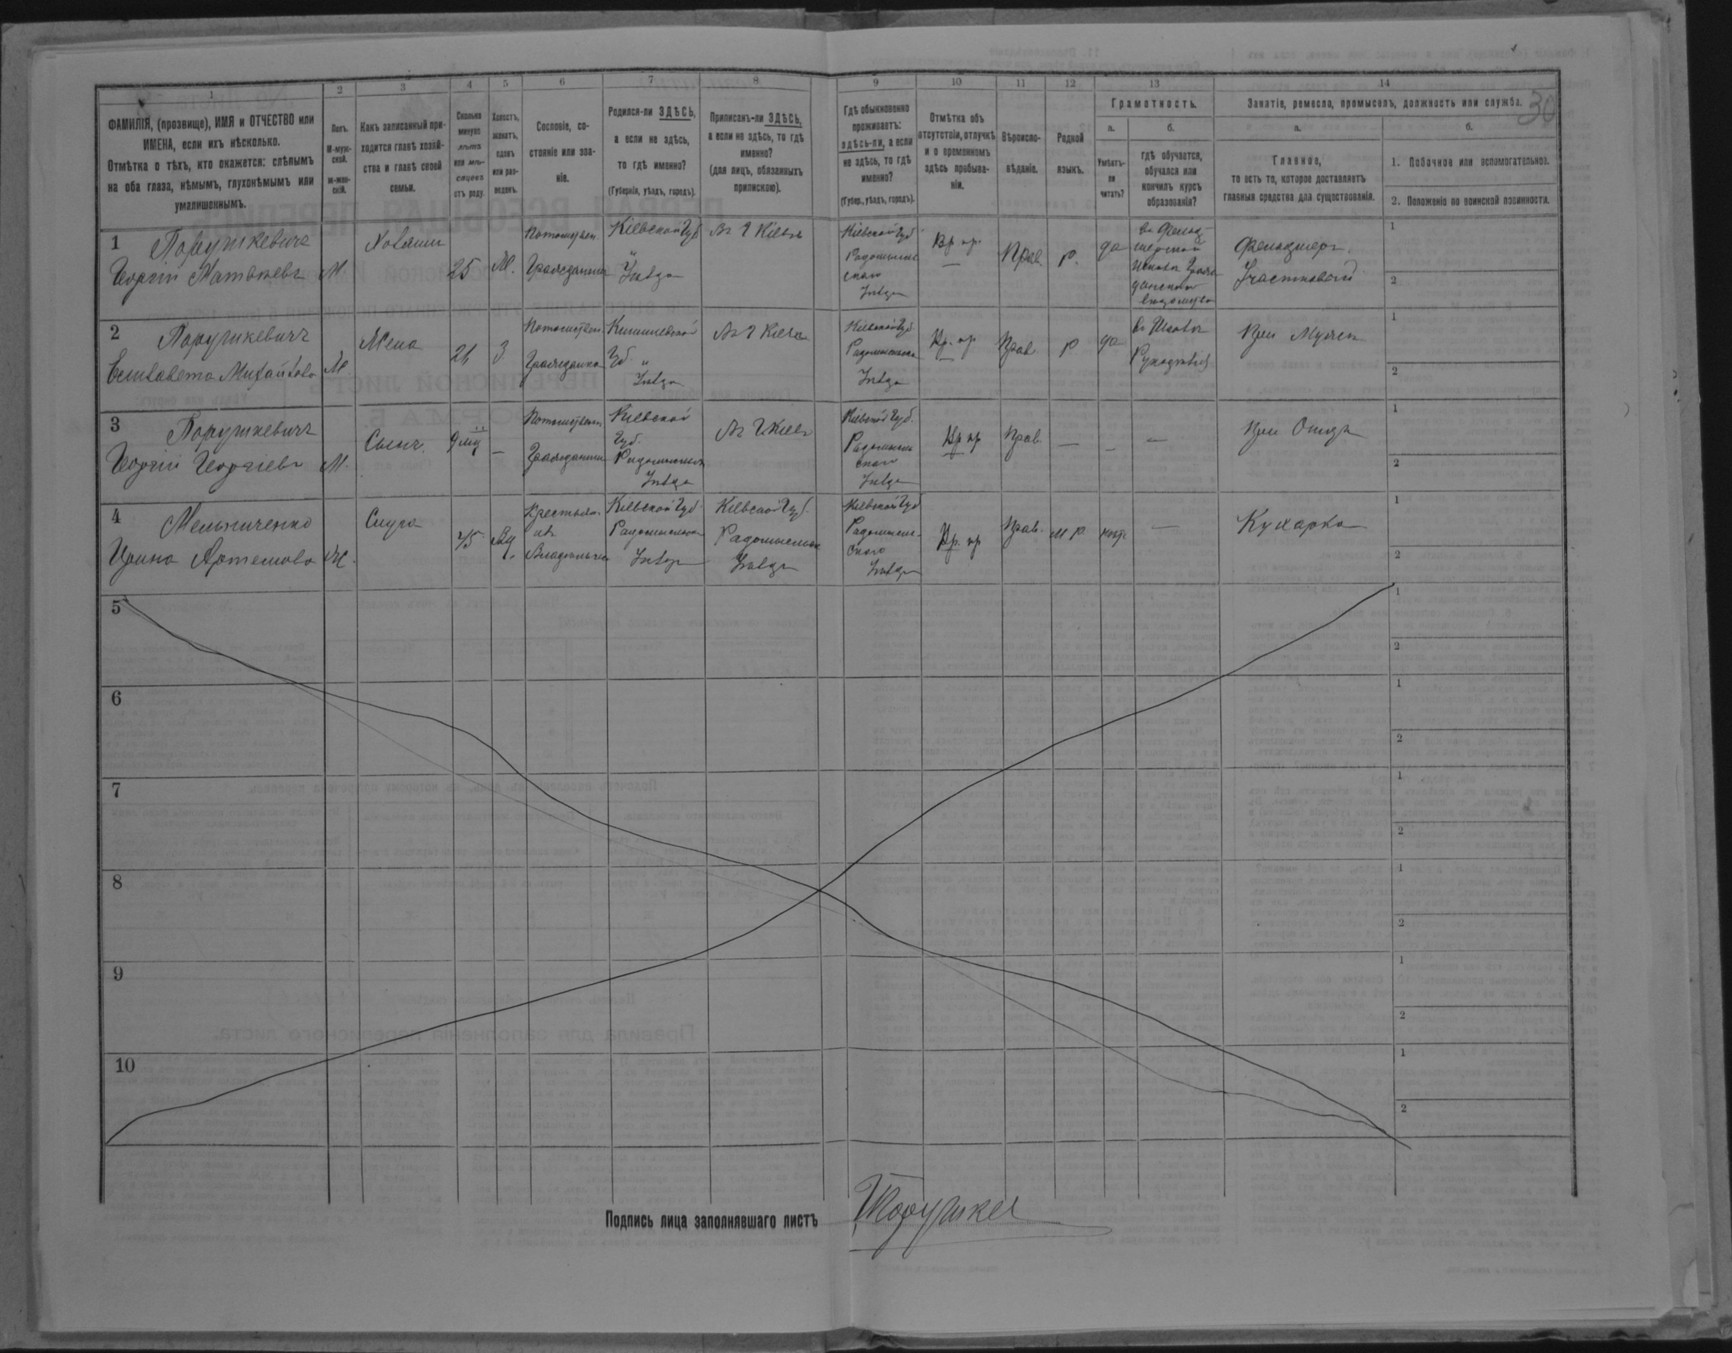 1 2 3 4 5 6 7 8 9 10 11 12 13 14
30
ФАМИЛІЯ, (прозвище), ИМЯ и ОТЧЕСТВО или
ИМЕНА, если ихъ нѣсколько.
Отмѣтка о тѣхъ, кто окажется: слѣпымъ
на оба глаза, нѣмымъ, глухонѣмымъ или
умалишеннымъ.
Полъ.
М-муж-
ской.
Ж-жен-
скій.
Какъ записанный при-
ходится главѣ хозяй-
ства и главѣ своей
семьи.
Сколько
минуло
лѣтъ
или мѣ-
сяцевъ
отъ роду.
Холостъ,
женатъ,
вдовъ
или раз-
веденъ.
Сословіе, со-
стояніе или зва-
ніе.
Родился-ли ЗДѢСЬ,
а если не здѣсь,
то гдѣ именно?
(Губернія, уѣздъ, городъ).
Приписанъ-ли ЗДѢСЬ,
а если не здѣсь, то гдѣ
именно?
(для лицъ, обязанныхъ
припискою).
Гдѣ обыкновенно
проживаетъ:
здѣсь-ли, а если
не здѣсь, то гдѣ
именно?
(Губер., уѣздъ, городъ).
Отмѣтка объ
отсутствіи, отлучкѣ
и о временномъ
здѣсь пребыва-
ніи.
Вѣроиспо-
вѣданіе.
Родной
языкъ.
Грамотность.
а.
Умѣетъ-
ли
читать?
б.
гдѣ обучается,
обучался или
кончилъ курсъ
образованія?
Занятіе, ремесло, промыселъ, должность или служба.
а.
Главное,
то есть то, которое доставляетъ
главныя средства для существованія.
б.
1. Побочное или вспомогательное.
2. Положеніе по воинской повинности.
1 Порушкевичъ
Георгій
М.
Хозяинъ
25
М.
Потомствен.
Гражданинъ
Кіевской Губ
"
Уѣзда
Въ Г Кіевѣ
Кіевской Губ
Радомысль
скаго
Уѣзда
Вр пр
Прав.
Р.
да
въ Фельд-
шерской
Школѣ Граж
данскаго
вѣдомства
Фельдшеръ
Участковый
1
2
2 Порушкевичъ
Елизавета Михайлова
Жена
21
З
Потомствен
Гражданка
Кишиневской
Губ "
Уѣзда
Въ Г Кіевѣ
Кіевской Губ
Радомысльск
Уѣзда
Вр. пр
Прав
Р
да
въ Школѣ
При Мужѣ
1
2
3 Порушкевичъ
Георгій Георгіевъ
М.
Сынъ.
9 мц
—
Потомствен.
Гражданинъ
Кіевской
Губ.
Радомысльск
Уѣзда
Въ Г. Кіевѣ
Кіевской Губ.
Радомысль
скаго
Уѣзда
Вр пр
Прав.
—
—
—
При Отцѣ
1
2
4 Мельниченко
Ирина Артемова
Ж.
Слуга
45
Вд.
Крестьян.
Кіевской Губ.
Радомысльск
Уѣзда
Кіевской Губ.
Радомысльск
Уѣзда
Кіевской Губ
Радомысль-
скаго
Уѣзда
Вр. пр
Прав.
м Р.
—
Кухарка
1
2
5
1
2
6
1
2
7
1
2
8
1
2
9
1
2
10
1
2
Подпись лица заполнявшаго листъ